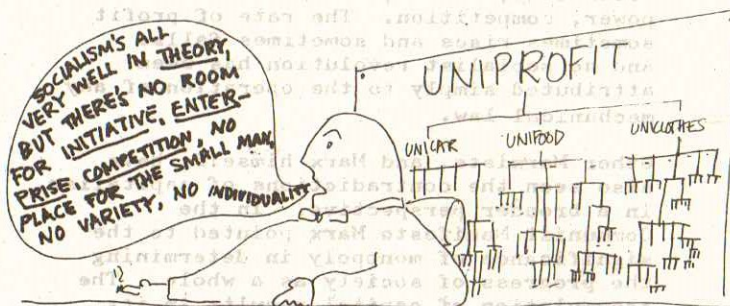 SOCIALISM'S ALL
VERY WELL IN THEORY,
BUT THERE'S NO ROOM
FOR INITIATIVE, ENTER-
PRISE COMPETITION, NO
PLACE FOR THE SMALL MAN,
NO VARIETY, NO INDIVIDUALITY
UNIPROFIT
UNICAR UNIFOOD UNICLOTHES